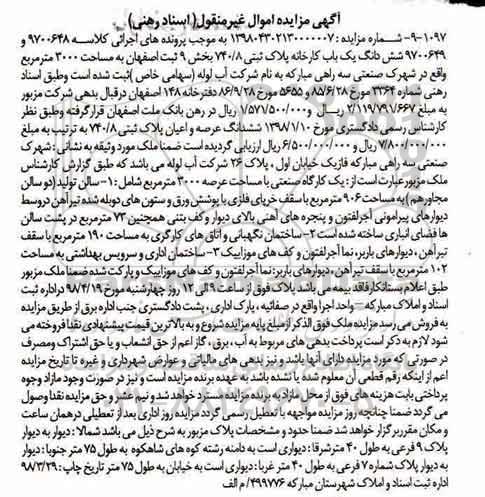 آگهی مزایده اموال غیرمنقول( اسناد رهنی)
۱۰۹۷-۹- شماره مزایده : ۱۳۹۸۰۴۳۰۲۱۳۰۰۰۰۰۷ به موجب پرونده های اجرائی کلاسه ۹۷۰۰۶۴۸ و
۹۷۰۰۶۴۹ شش دانگ یک باب کارخانه پلاک ثبتی ۷۴۰/۸ بخش ۹ ثبت اصفهان به مساحت ۳۰۰۰ مترمربع
واقع در شهرک صنعتی سه راهی مبارکه به نام شرکت آب لوله (سهامی خاص )ثبت شده است وطبق اسناد
رهنی شماره ۳۳۶۴ مورخ ۸۵/۶/۲۸ و ۵۶۵۵ مورخ ۸۶/۹/۲۸ دفترخانه ۱۴۸ اصفهان درقبال بدهی شرکت مزبور
به مبلغ ۲/۱۱۹/۷۹۱/۶۶۷ ریال و ۱/۵۷۱/۵۰۰/۰۰۰ ریال در رهن بانک ملت اصفهان قرارگرفته وطبق نظر
کارشناس رسمی دادگستری مورخ ۱۳۹۸/۱/۱۰ ششدانگ عرصه و اعیان پلاک ثبتی ۷۴۰/۸ به ترتیب به مبلغ
۷/۸۰۰/۰۰۰/۰۰۰ ریال و ۶/۵۰۰/۰۰۰/۰۰۰ ریال ارزیابی گردیده است ضمنا ملک مورد وثیقه به نشانی : شهرک
صنعتی سه راهی مبارکه فازیک خیابان اول ، پلاک ۲۶ شرکت آب لوله می باشد که طبق گزارش کارشناس
ملک مزبورعبارت است از: یک کارگاه صنعتی با مساحت عرصه ۳۰۰۰ مترمربع شامل : ۱- سالن تولید (دو سالن
مجاورهم )به مساحت ۹۰۶ مترمربع با سقف خرپای فلزی با پوشش ورق و ستون های دوبله شده تیرآهن دروسط
دیوارهای پیرامونی آجرلفتون و پنجره های آهنی بالای دیوار و کف بتنی همچنین ۷۳ مترمربع در پشت سالن
ها فضای انباری ساخته شده است ۲- ساختمان نگهبانی و اتاق های کارگری به مساحت ۱۹۰ مترمربع با سقف
تیرآهن ، دیوارهای باربر، نما آجرلفتون و کف های موزاییک ۳- ساختمان اداری و سرویس بهداشتی به مساحت
۱۰۲ مترمربع با سقف تیرآهن ، دیوارهای باربر:نما آجرلفتون و کف های موزاییک و پارکت شده ضمنا ملک مزبور
طبق اعلام بستانکارفاقد بیمه می باشد پلاک فوق از ساعت ۹ الی ۱۲ روز چهارشنبه مورخ ۹۸/۴/۱۹ دراداره ثبت
اسناد و املاک مبارکه – واحد اجرا واقع در صفائیه ، پارک اداری ، پشت دادگستری جنب اداره برق از طریق مزایده
به فروش می رسد مزایده ملک فوق الذکر از مبلغ پایه مزایده شروع و به بالاترین قیمت پیشنهادی نقدا فروخته می
شود لازم به ذکر است پرداخت بدهی های مربوط به آب ، برق ، گاز اعم از حق انشعاب و یا حق اشتراک ومصرف
در صورتی که مورد مزایده دارای آنها باشد و نیز بدهی های مالیاتی و عوارض شهرداری و غیره تا تاریخ مزایده
اعم از اینکه رقم قطعی آن معلوم شده یا نشده باشد به عهده برنده مزایده است و نیز در صورت وجود مازاد وجوه
پرداختی بابت هزینه های فوق از محل مازاد به برنده مزایده مسترد خواهد شد و نیم عشر و حق مزایده نقدا وصول
می گردد ضمنا چنانچه روز مزایده مواجهه با تعطیل رسمی گردد مزایده روز اداری بعد از تعطیلی درهمان ساعت
و مکان مقرربرگزار خواهد شد ضمنا حدود و مشخصات پلاک مزبور به شرح ذیل می باشد شمالا : دیوار به دیوار
پلاک ۹ فرعی به طول ۴۰ مترشرقا : دیواری است به دامنه رشته کوه های شاهکوه به طول ۷۵ متر جنوبا : دیوار
به دیوار پلاک شماره ۷ فرعی به طول ۴۰ متر غربا : دیواری است به خیابان به طول ۷۵ متر تاریخ چاپ : ۹۸/۳/۲۹
اداره ثبت اسناد و املاک شهرستان مبارکه ۴۹۹۷۷۶/ م الف